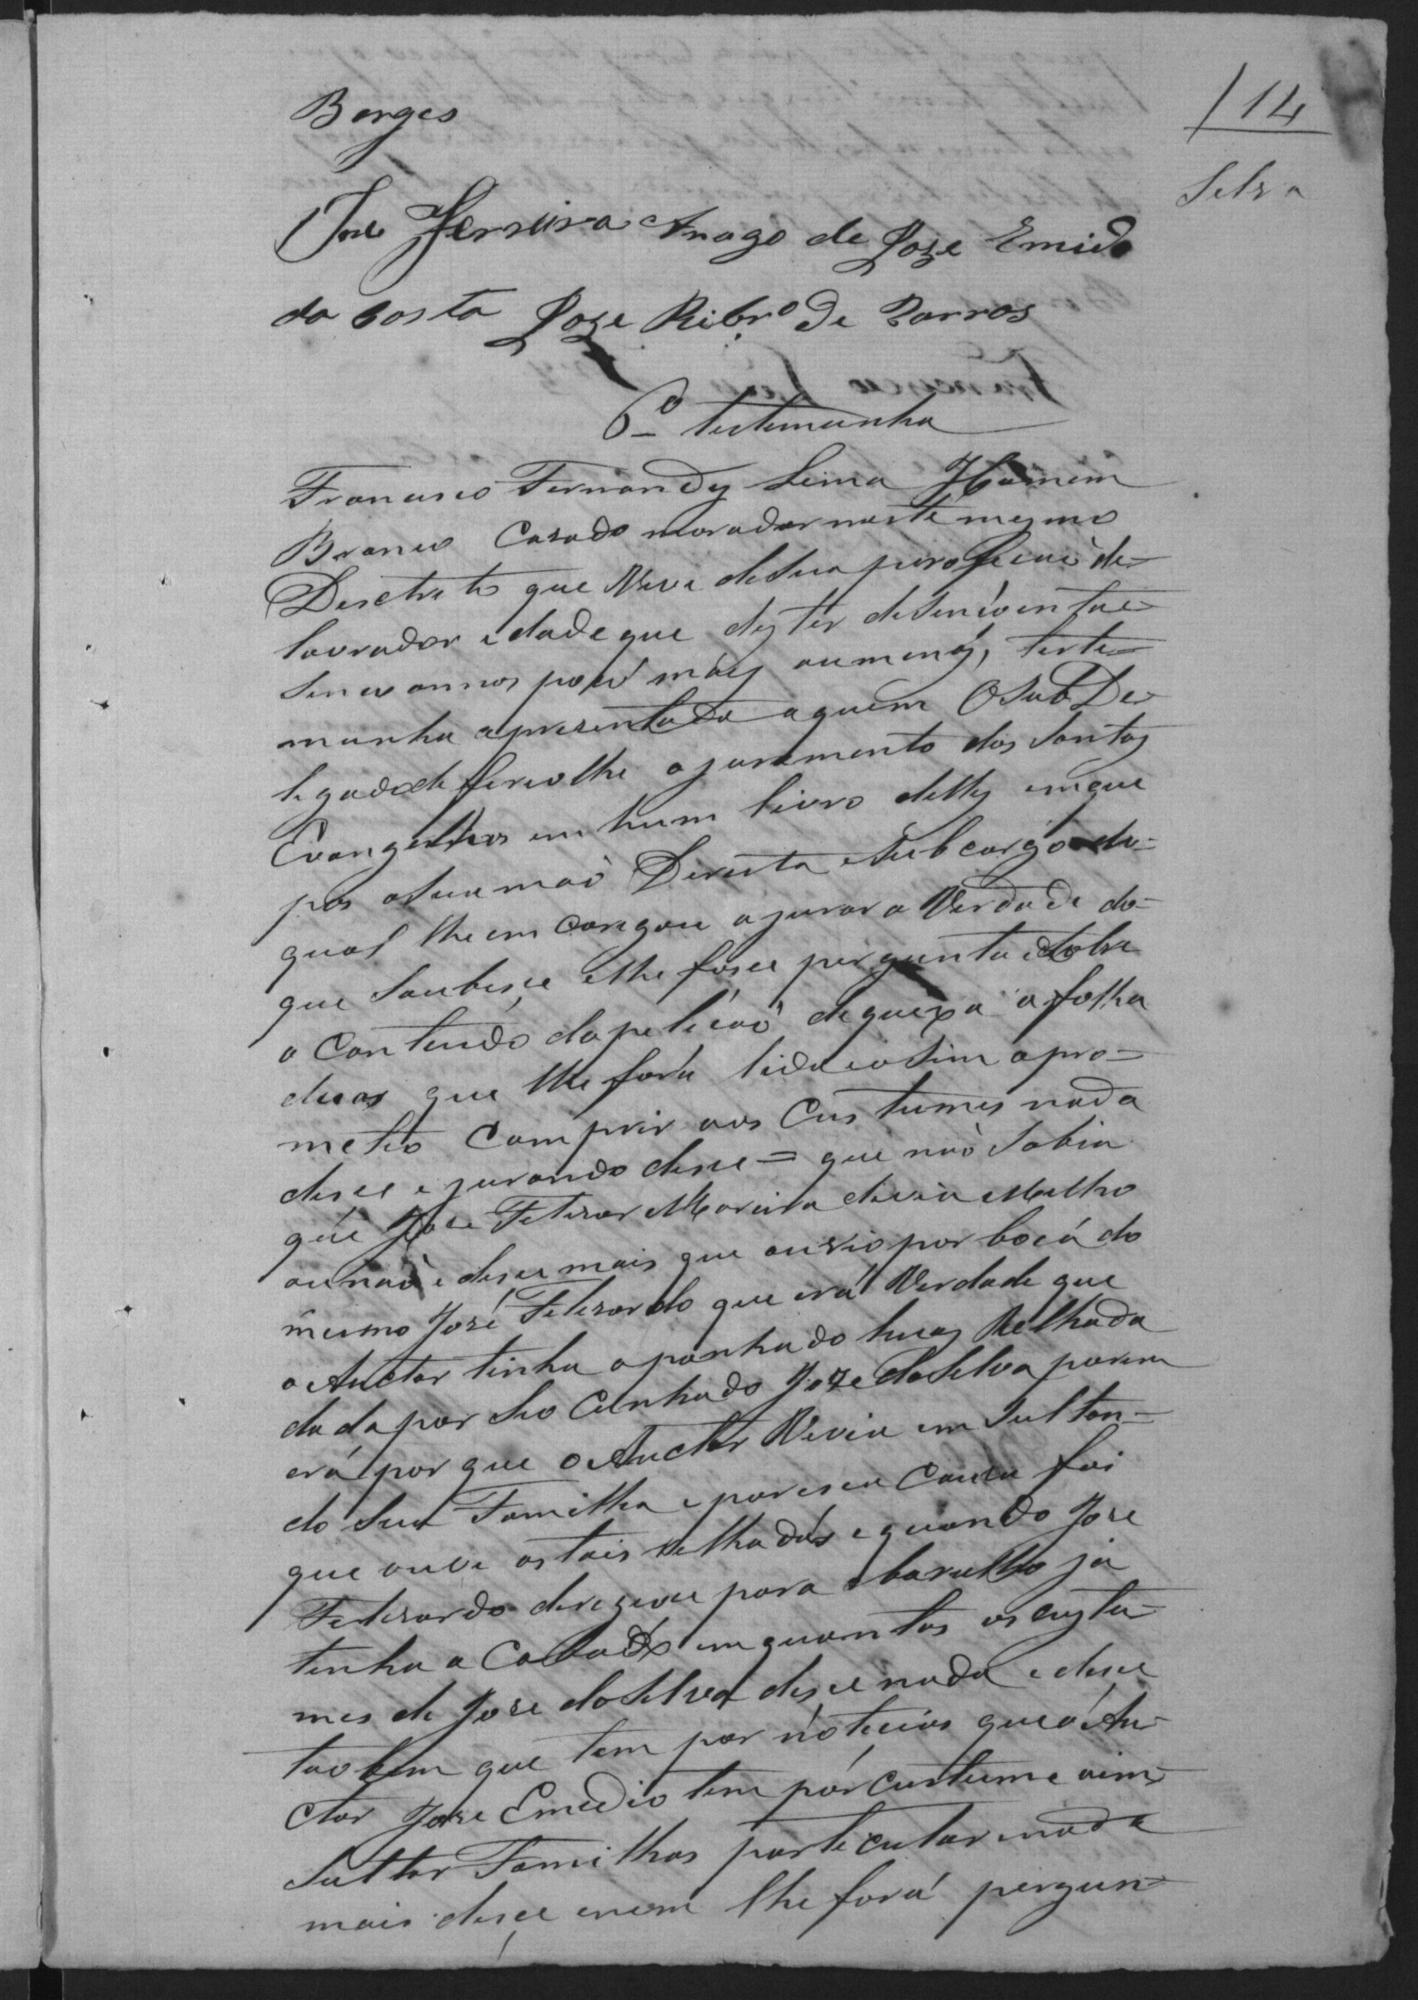 114
Silva
Borges
José Ferreira Arago de Joze Emidio
da Costa Joze Ribrº de Barros
6ª testemunha
Francisco Fernandes Lima Homem
Branco Casado morador neste mesmo
Desctrito que Veve de sua profiçaõ de-
lavrador idade que dis ter de sincoenta e
sinco annos pouco mais ou menos, teste-
munha aprezentada a quem o Sub De-
legado deferio lhe o juramento dos Santos
Evangelhos em hum livro delles em que
pos a sua maõ Dereita e sub cargo do
qual lhe em Caregou a jurar a Verdade do-
que Soubesse e lhe fosse perguntado sobre
o Conteudo da peticaõ de queixa a folha
duas que lhe fora lida e asim o pro-
meteo Comprir aos Custumes nada
disse e jurando disse = que naõ Sabia
que Joze Felisardo Moreira devia e Matheo
ou naõ e disse mais que ouvio por boca do
mesmo José Felisardo que erá Verdade que
o Auctor tinha apanhado huas Relhada
dada por seo Cunhado Joze da Silva porem
erá por que o Auctor Vevia em sultan-
do Sua Familha e por essa Cauza foi
que ouve as tais relhadas e quando Joze
Felisardo deregeu para o barulho já
tinha acabado em quantos os custu-
mes de Joze da Silva disse nada e disse
taobem que tem por noticias que o Au-
ctor Joze Emidio tem por custume aim-
sultar Familhas particular nada
mais disse enem lhe forá pergun-